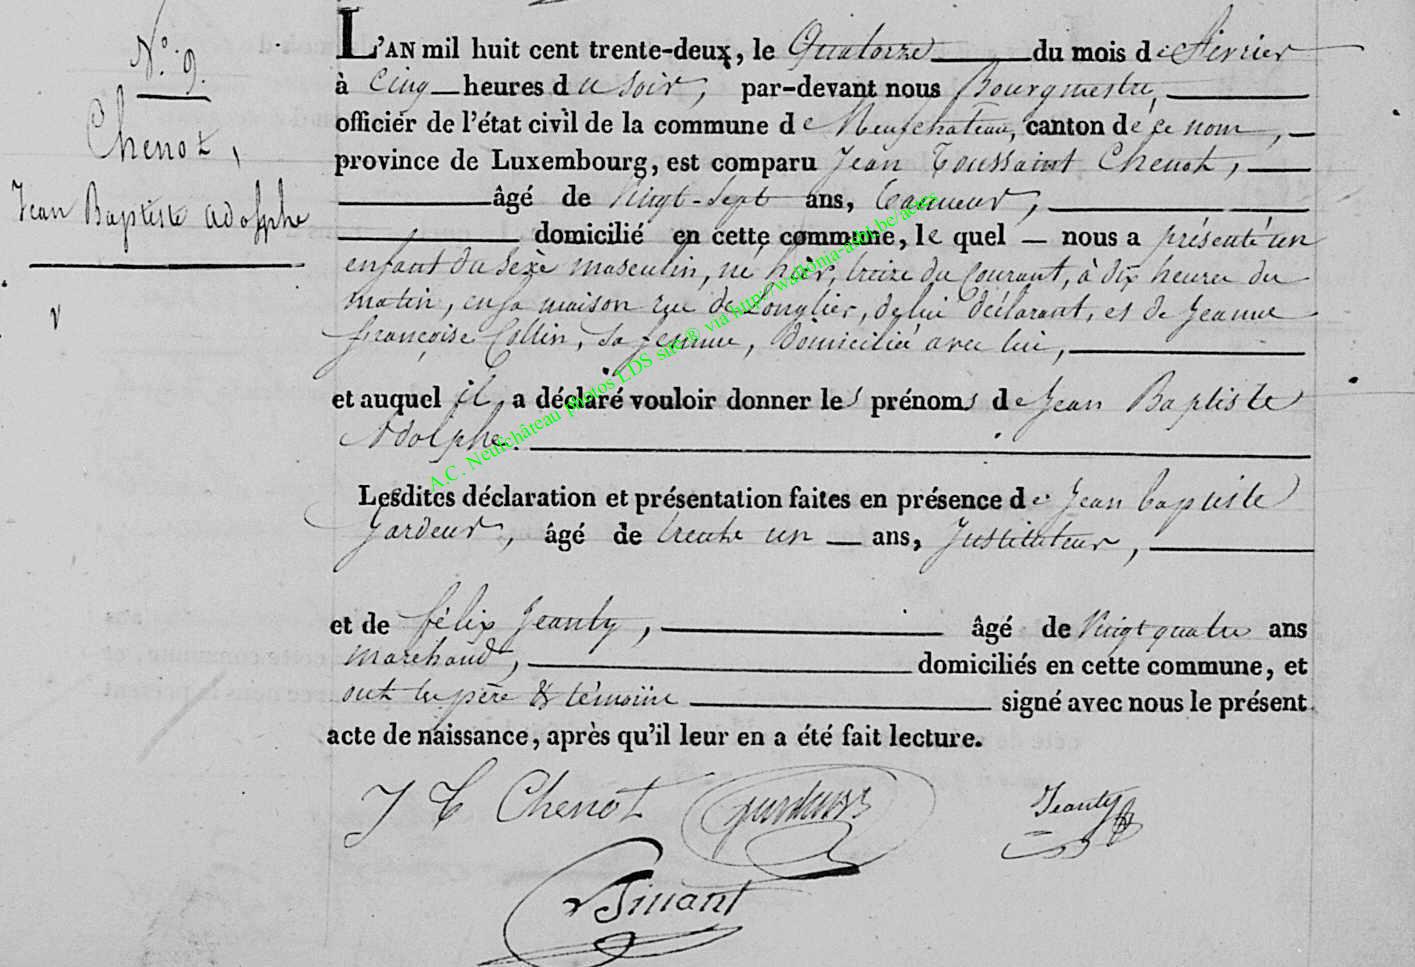 N.° 9.
Chenot,
Jean Baptiste Adolphe
L'AN mil huit cent trente-deux, le Quatorze du mois de Février
à Cinq heures du soir, par-devant nous Bourgmestre,
officier de l'état civil de la commune de Neufchateau, canton de ce nom,
province de Luxembourg, est comparu Jean Toussaint Chenot,
âgé de Vingt-sept ans, tanneur,
domicilié en cette commune, le quel nous a présenté un
enfant du sexe masculin, né hier, treize du Courant, à dix heures du
matin, en sa maison rue de Longlier, de lui déclarant, et de Jeanne
françoise Collin, sa femme, domiciliée avec lui,
et auquel il a déclaré vouloir donner les prénoms de Jean Baptiste
Adolphe.
Lesdites déclaration et présentation faites en présence de Jean baptiste
Gardeur, âgé de trente un ans, Instituteur,
et de félix Jeanty, âgé de Vingt quatre ans
marchand, domiciliés en cette commune, et
ont les père & témoins signé avec nous le présent
acte de naissance, après qu'il leur en a été fait lecture.
J T Chenot Jeanty
A.C. Neufchâteau photos LDS site® via http://wallonia-asbl.be/actes